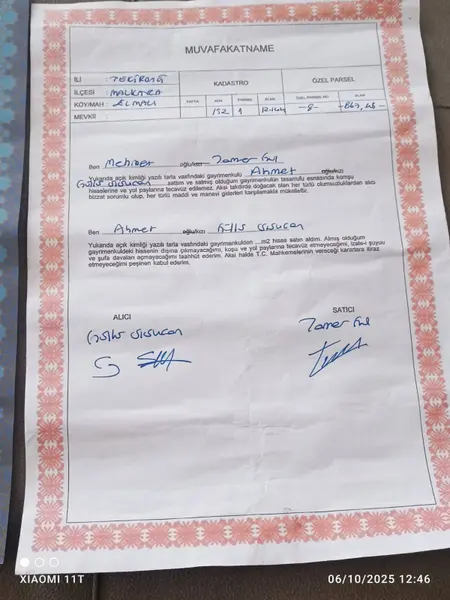 MUVAFAKATNAME
İLİ : TEKİRDAĞ
KADASTRO
ÖZEL PARSEL
İLÇESİ : MALKARA
KÖY/MAH : ELMALI
PAFTA
ADA
PARSEL
ALAN
ÖZEL PARSEL NO
ALAN
MEVKİİ :
152
1
-8-
Ben Mehmet oğlu/kızı Tamer Gül
Yukarıda açık kimliği yazılı tarla vasfındaki gayrimenkulü Ahmet
sattım ve satmış olduğum gayrimenkulün tasarrufu esnasında komşu
hisselerine ve yol paylarına tecavüz edilemez. Aksi takdirde doğacak olan her türlü olumsuzluklardan sıcı
bizzat sorumlu olup, her türlü maddi ve manevi giderleri karşılamakla mükelleftir.
Ben Ahmet oğlu/kızı
Yukarıda açık kimliği yazılı tarla vasfındaki gayrimenkulden ....m2 hisse satın aldım. Almış olduğum
gayrimenkuldeki hissenin dışına çıkılmayacağımı, koşu ve yol paylarına tecavüz etmeyeceğimi, izale-i şuyuu
ve şufa davaları açmayacağımı taahhüt ederim. Aksi halde T.C. Mahkemelerinin vereceği kararlara itiraz
etmeyeceğimi peşinen kabul ederim.
ALICI
SATICI
Tamer Gül
XIAOMI 11T
06/10/2025 12:46